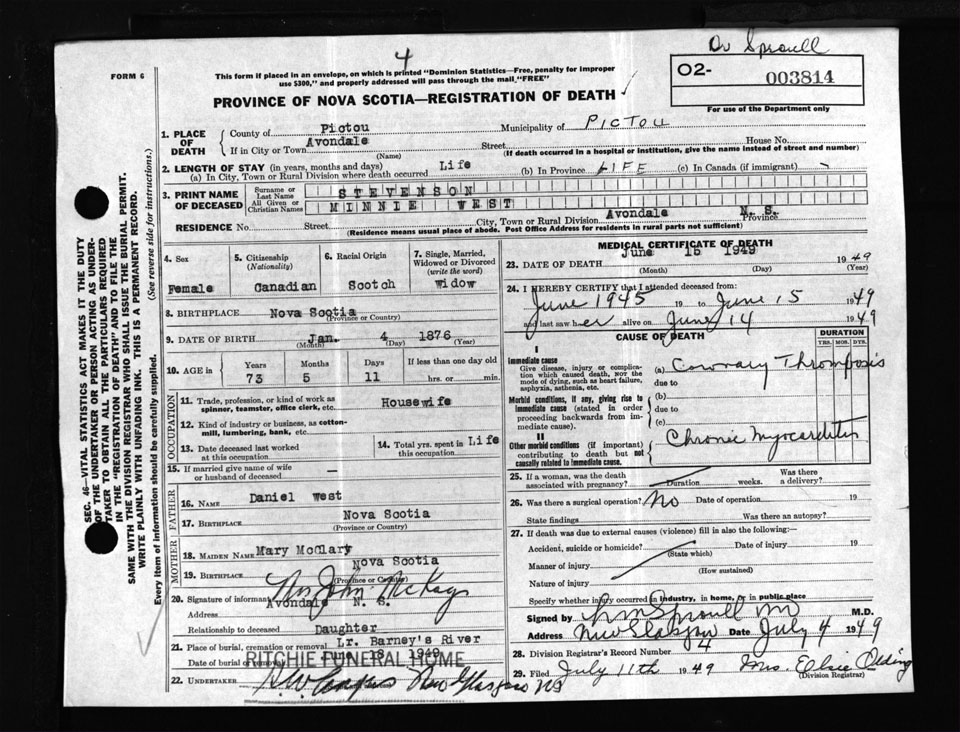 Dr Sproull
4
FORM 6
This form if placed in an envelope, on which is printed "Dominion Statistics—Free, penalty for improper
use $300," and properly addressed will pass through the mail "FREE"
02- 003814
For use of the Department only
PROVINCE OF NOVA SCOTIA—REGISTRATION OF DEATH
1. PLACE OF DEATH
County of Pictou Municipality of PICTOU
If in City or Town Avondale Street House No.
(Name) (If death occurred in a hospital or institution, give the name instead of street and number)
2. LENGTH OF STAY (in years, months and days)
(a) In City, Town or Rural Division where death occurred Life (b) In Province LIFE (c) In Canada (if immigrant) -
3. PRINT NAME OF DECEASED
Surname or Last Name STEVENSON
All Given or Christian Names MINNIE WEST
RESIDENCE No. Street City, Town or Rural Division Avondale Province N. S.
(Residence means usual place of abode. Post Office Address for residents in rural parts not sufficient)
4. Sex Female
5. Citizenship (Nationality) Canadian
6. Racial Origin Scotch
7. Single, Married, Widowed or Divorced (write the word) Widow
8. BIRTHPLACE Nova Scotia
(Province or Country)
9. DATE OF BIRTH Jan. 4 1876
(Month) (Day) (Year)
10. AGE in Years Months Days If less than one day old
73 5 11 hrs. or min.
OCCUPATION
11. Trade, profession, or kind of work as spinner, teamster, office clerk, etc. Housewife
12. Kind of industry or business, as cotton-mill, lumbering, bank, etc.
13. Date deceased last worked at this occupation
14. Total yrs. spent in this occupation Life
15. If married give name of wife or husband of deceased —
FATHER
16. NAME Daniel West
17. BIRTHPLACE Nova Scotia
(Province or Country)
MOTHER
18. MAIDEN NAME Mary McClary
19. BIRTHPLACE Nova Scotia
(Province or Country)
20. Signature of informant Mrs John McKay
Address Avondale N. S.
Relationship to deceased Daughter
21. Place of burial, cremation or removal Lr. Barney's River
Date of burial or removal June 18 1949
RITCHIE FUNERAL HOME
22. UNDERTAKER New Glasgow NS
MEDICAL CERTIFICATE OF DEATH
23. DATE OF DEATH June 15 1949 1949
(Month) (Day) (Year)
24. I HEREBY CERTIFY that I attended deceased from:
June 1945 19 to June 15 1949
and last saw her alive on June 14 1949
CAUSE OF DEATH DURATION
YRS. MOS. DYS.
I
Immediate cause
Give disease, injury or complication which caused death, not the mode of dying, such as heart failure, asphyxia, asthenia, etc.
(a) Coronary Thrombosis
due to
Morbid conditions, if any, giving rise to immediate cause (stated in order proceeding backwards from immediate cause).
(b)
due to
(c)
II
Other morbid conditions (if important) contributing to death but not causally related to immediate cause.
Chronic Myocarditis
25. If a woman, was the death associated with pregnancy? Duration weeks. Was there a delivery?
26. Was there a surgical operation? No Date of operation 19
State findings Was there an autopsy?
27. If death was due to external causes (violence) fill in also the following:—
Accident, suicide or homicide? Date of injury 19
(State which)
Manner of injury
(How sustained)
Nature of injury
Specify whether injury occurred in industry, in home, or in public place
Signed by Sproull MD M.D.
Address New Glasgow Date July 4 1949
28. Division Registrar's Record Number 4
29. Filed July 11th 1949 Mrs. Elsie Olding
(Division Registrar)
SEC. 46—VITAL STATISTICS ACT MAKES IT THE DUTY
OF THE UNDERTAKER OR PERSON ACTING AS UNDER-
TAKER TO OBTAIN ALL THE PARTICULARS REQUIRED
IN THE "REGISTRATION OF DEATH" AND TO FILE THE
SAME WITH THE DIVISION REGISTRAR WHO SHALL ISSUE THE BURIAL PERMIT.
WRITE PLAINLY WITH UNFADING INK. THIS IS A PERMANENT RECORD.
Every item of information should be carefully supplied. (See reverse side for instructions.)